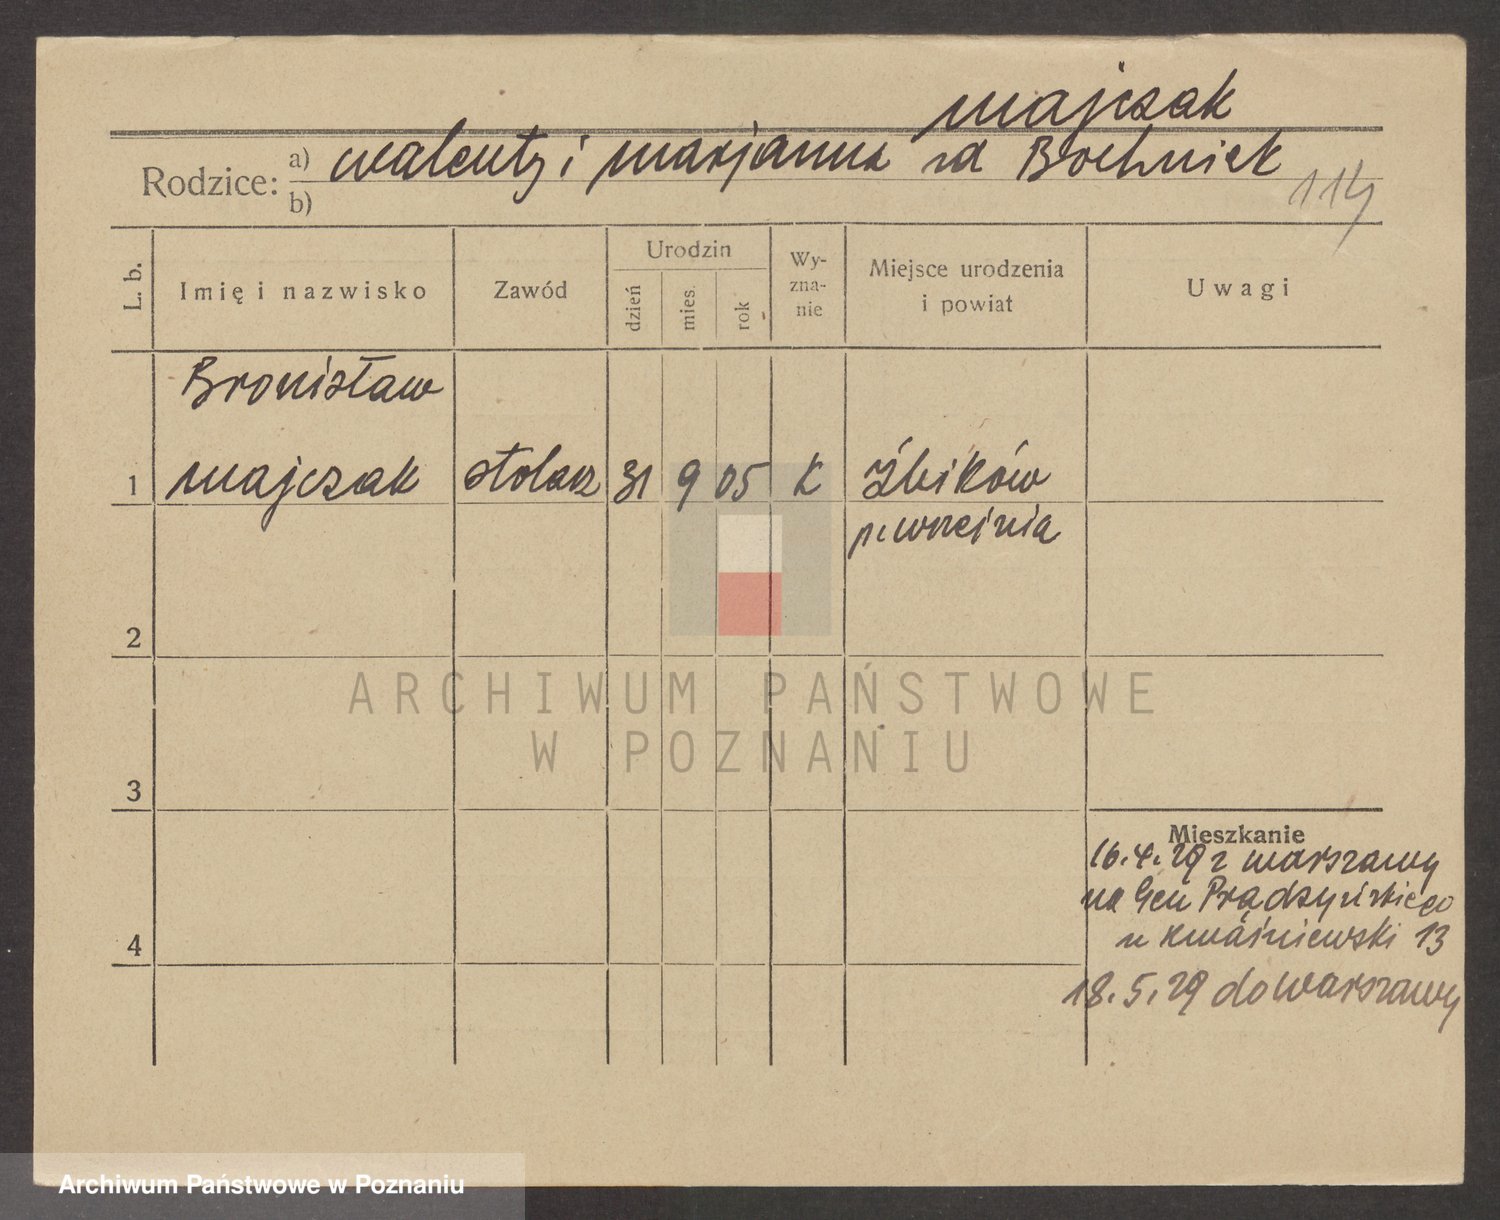 Majczak
Rodzice: a) Walenty i Marjanna zd Bochniek
b)
114
L. b.
Imię i nazwisko
Zawód
Urodzin
dzień
mies.
rok
Wy-
zna-
nie
Miejsce urodzenia
i powiat
Uwagi
Bronisław
1 Majczak stolarz 31 9 05 K Źbików
p. września
2
3
4
Mieszkanie
16.4.29 z Warszawy
na Gen Prądzyńskiego
u Kwaśniewski 13
18.5.29 do Warszawy
ARCHIWUM PAŃSTWOWE
W POZNANIU
Archiwum Państwowe w Poznaniu